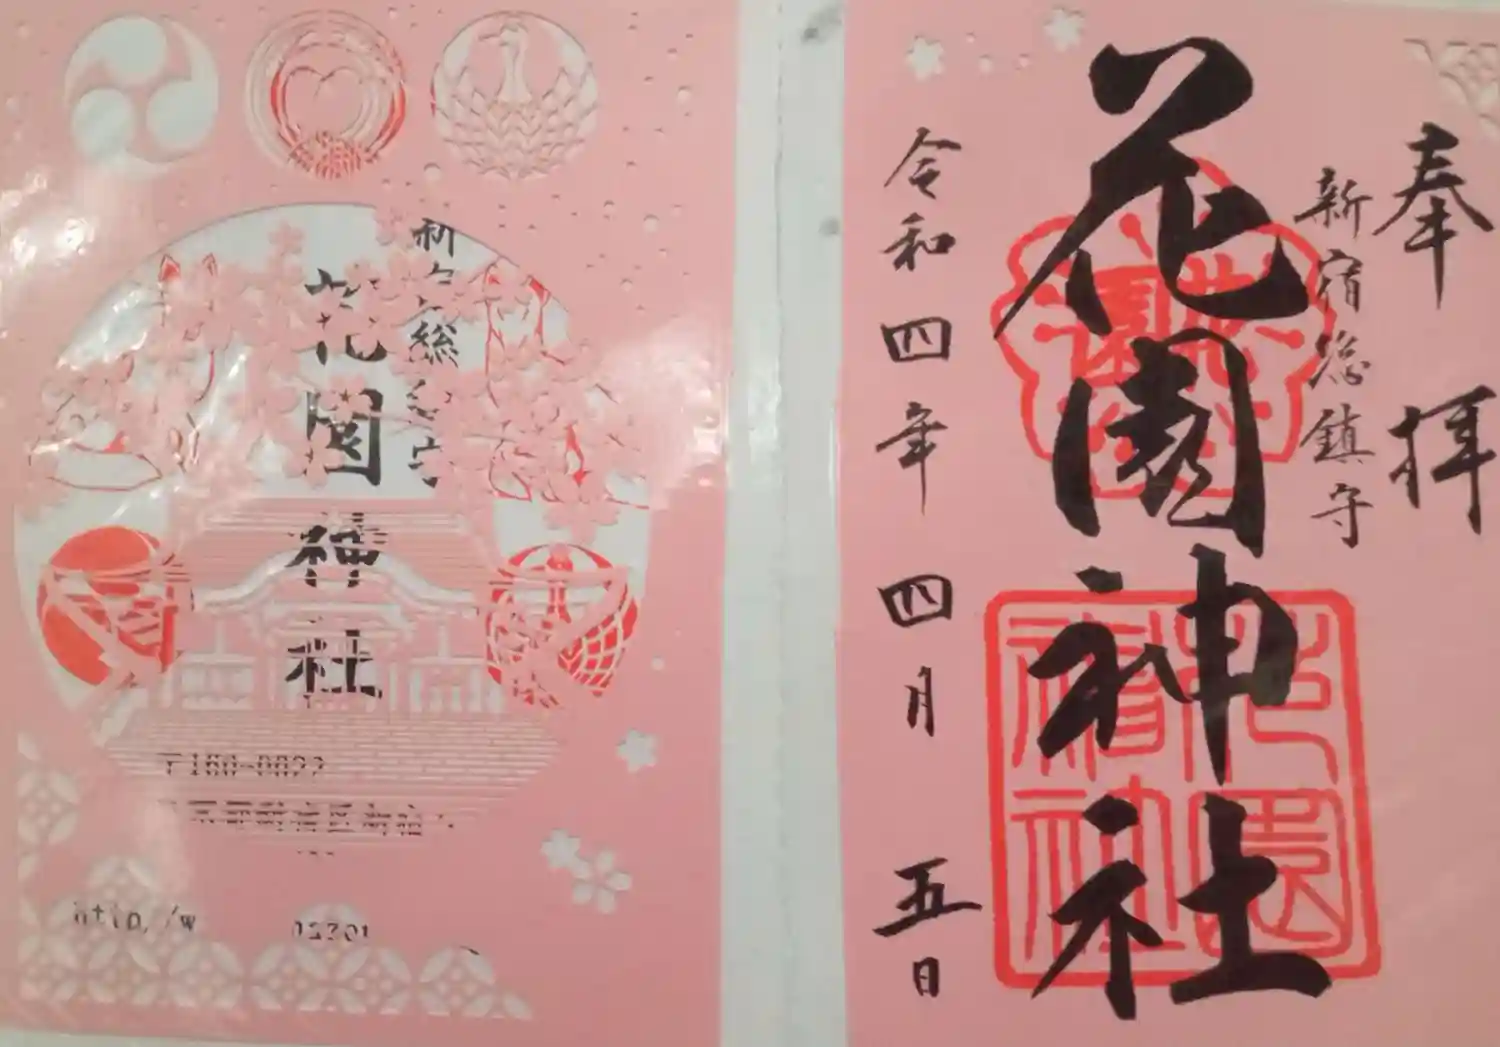 奉拝
新宿総鎮守
花園神社
令和四年四月五日
花園神社
花園
花園神社
〒160-0022
http://w